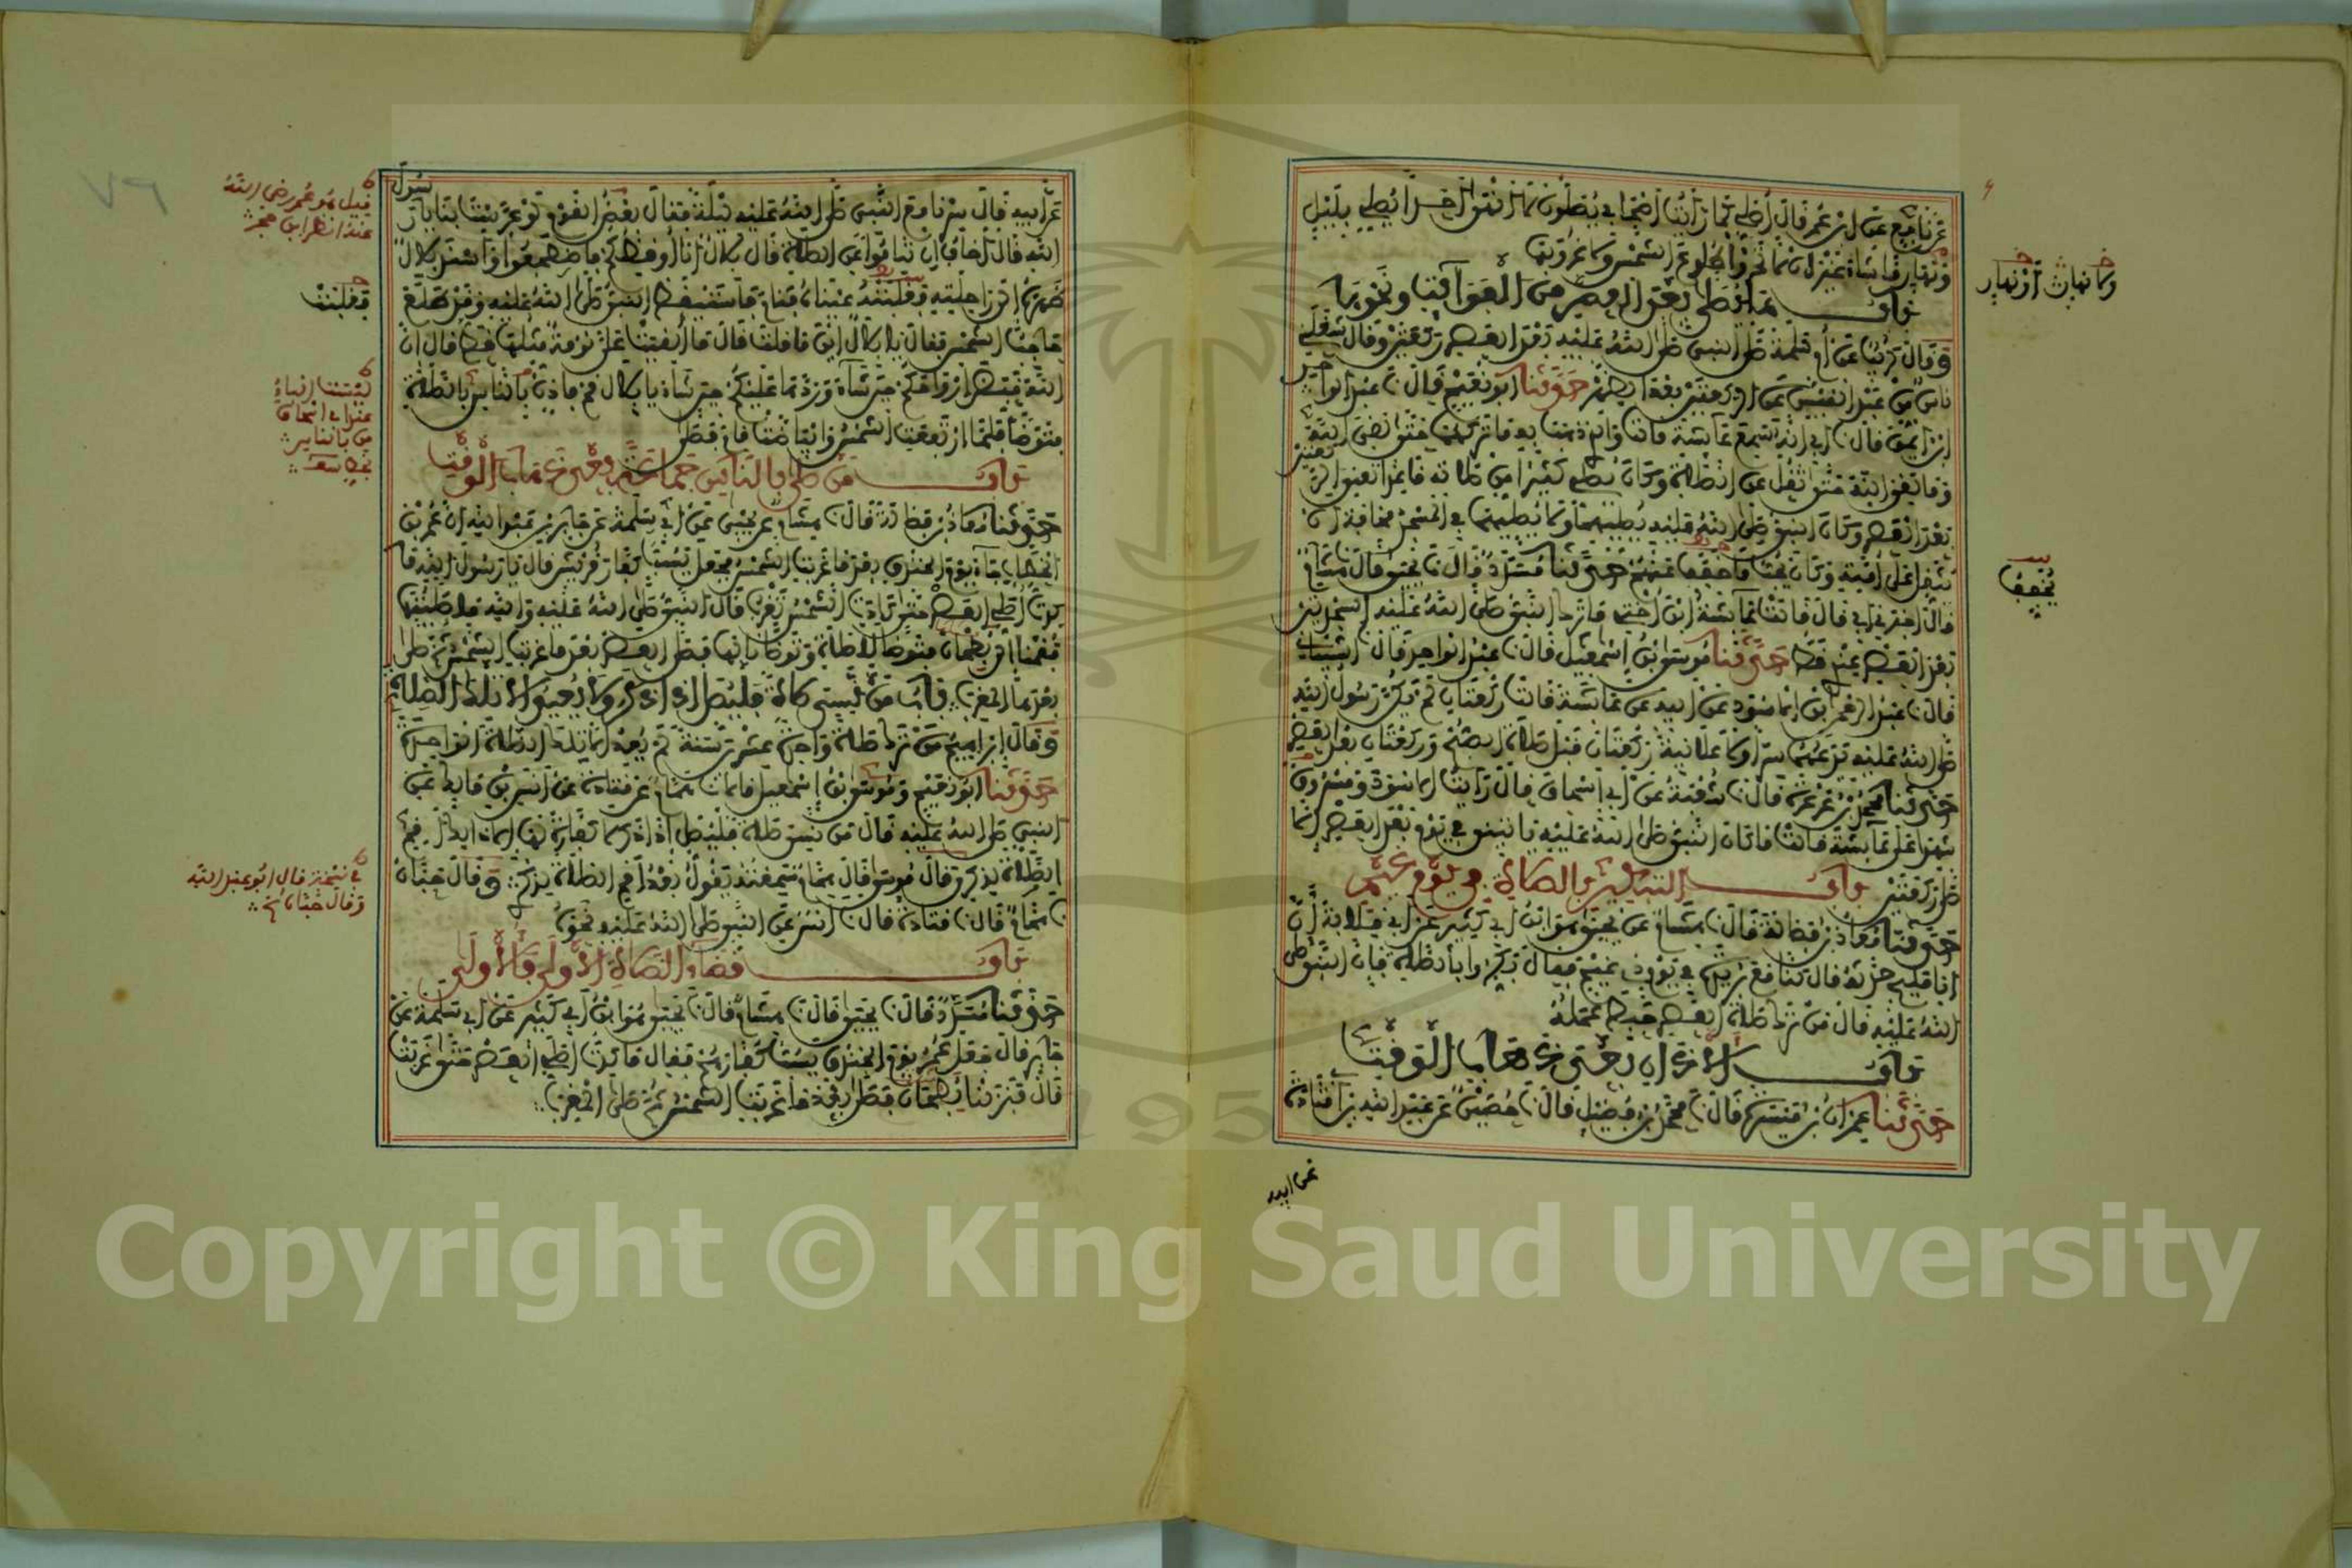 عن نافع عن ابن عمر قال أصلي كما رأيت أصحابي يصلون لا أنهى أحدا يصلي بليل
ونهار ما شاء غير أن لا تحروا طلوع الشمس ولا غروبها
باب ما يصلى بعد العصر من الفوائت ونحوها
وقال كريب عن أم سلمة صلى النبي صلى الله عليه بعد العصر ركعتين وقال شغلني
ناس من عبد القيس عن الركعتين بعد الظهر حدثنا أبو نعيم قال نا عبد الواحد
ابن أيمن قال نا أبي أنه سمع عائشة قالت والذي ذهب به ما تركهما حتى لقي الله
وما لقي الله حتى ثقل عن الصلاة وكان يصلي كثيرا من صلاته قاعدا تعني الركعتين
بعد العصر وكان النبي صلى الله عليه يصليهما ولا يصليهما في المسجد مخافة أن
يثقل على أمته وكان يحب ما خفف عنهم حدثنا مسدد قال نا يحيى قال نا هشام
قال أخبرني أبي قال قالت عائشة ابن أختي ما ترك النبي صلى الله عليه السجدتين
بعد العصر عندي قط حدثنا موسى بن إسمعيل قال نا عبد الواحد قال نا الشيباني
قال نا عبد الرحمن بن الأسود عن أبيه عن عائشة قالت ركعتان لم يكن رسول الله
صلى الله عليه يدعهما سرا ولا علانية ركعتان قبل صلاة الصبح وركعتان بعد العصر
حدثنا محمد بن عرعرة قال نا شعبة عن أبي إسحاق قال رأيت الأسود ومسروقا
شهدا على عائشة قالت ما كان النبي صلى الله عليه يأتيني في يوم بعد العصر إلا
صلى ركعتين باب التبكير بالصلاة في يوم غيم
حدثنا معاذ بن فضالة قال نا هشام عن يحيى هو ابن أبي كثير عن أبي قلابة أن
أبا المليح حدثه قال كنا مع بريدة في يوم ذي غيم فقال بكروا بالصلاة فإن النبي صلى
الله عليه قال من ترك صلاة العصر حبط عمله
باب الأذان بعد ذهاب الوقت
حدثنا عمران بن ميسرة قال نا محمد بن فضيل قال نا حصين عن عبد الله بن أبي قتادة
عن أبيه
ولا نهار أو نهار
يخفف
عن أبيه قال سرنا مع النبي صلى الله عليه ليلة فقال بعض القوم لو عرست بنا يا رسول
الله قال أخاف أن تناموا عن الصلاة قال بلال أنا أوقظكم فاضطجعوا وأسند بلال
ظهره إلى راحلته فغلبته عيناه فنام فاستيقظ النبي صلى الله عليه وقد طلع
حاجب الشمس فقال يا بلال أين ما قلت قال ما ألقيت علي نومة مثلها قط قال إن
الله قبض أرواحكم حين شاء وردها عليكم حين شاء يا بلال قم فأذن بالناس بالصلاة
فتوضأ فلما ارتفعت الشمس وابياضت قام فصلى
باب من صلى بالناس جماعة بعد ذهاب الوقت
حدثنا معاذ بن فضالة قال نا هشام عن يحيى عن أبي سلمة عن جابر بن عبد الله أن عمر بن
الخطاب جاء يوم الخندق بعد ما غربت الشمس فجعل يسب كفار قريش قال يا رسول الله ما
كدت أصلي العصر حتى كادت الشمس تغرب قال النبي صلى الله عليه والله ما صليتها
فقمنا إلى بطحان فتوضأ للصلاة وتوضأنا لها فصلى العصر بعد ما غربت الشمس ثم صلى
بعدها المغرب باب من نسي صلاة فليصل إذا ذكر ولا يعيد إلا تلك الصلاة
وقال إبراهيم من ترك صلاة واحدة عشرين سنة لم يعد إلا تلك الصلاة الواحدة
حدثنا أبو نعيم وموسى بن إسمعيل قالا نا همام عن قتادة عن أنس بن مالك عن
النبي صلى الله عليه قال من نسي صلاة فليصل إذا ذكر لا كفارة لها إلا ذلك أقم
الصلاة لذكري قال موسى قال همام سمعته يقول بعد أقم الصلاة لذكري وقال حبان
نا همام قال نا قتادة قال نا أنس عن النبي صلى الله عليه نحوه
باب قضاء الصلاة الأولى فالأولى
حدثنا مسدد قال نا يحيى قال نا هشام قال نا يحيى هو ابن أبي كثير عن أبي سلمة عن
جابر قال جعل عمر يوم الخندق يسب كفارهم فقال ما كدت أصلي العصر حتى غربت
قال فنزلنا بطحان فصلى بعد ما غربت الشمس ثم صلى المغرب
قيل هو عمر رضي الله
عنه انظر ابن حجر
فغلبت
ليست الباء
عند أبي إسحاق
من بالناس
في نسخة قال أبو عبد الله
وقال حبان الخ
٧٦
195
Copyright © King Saud University